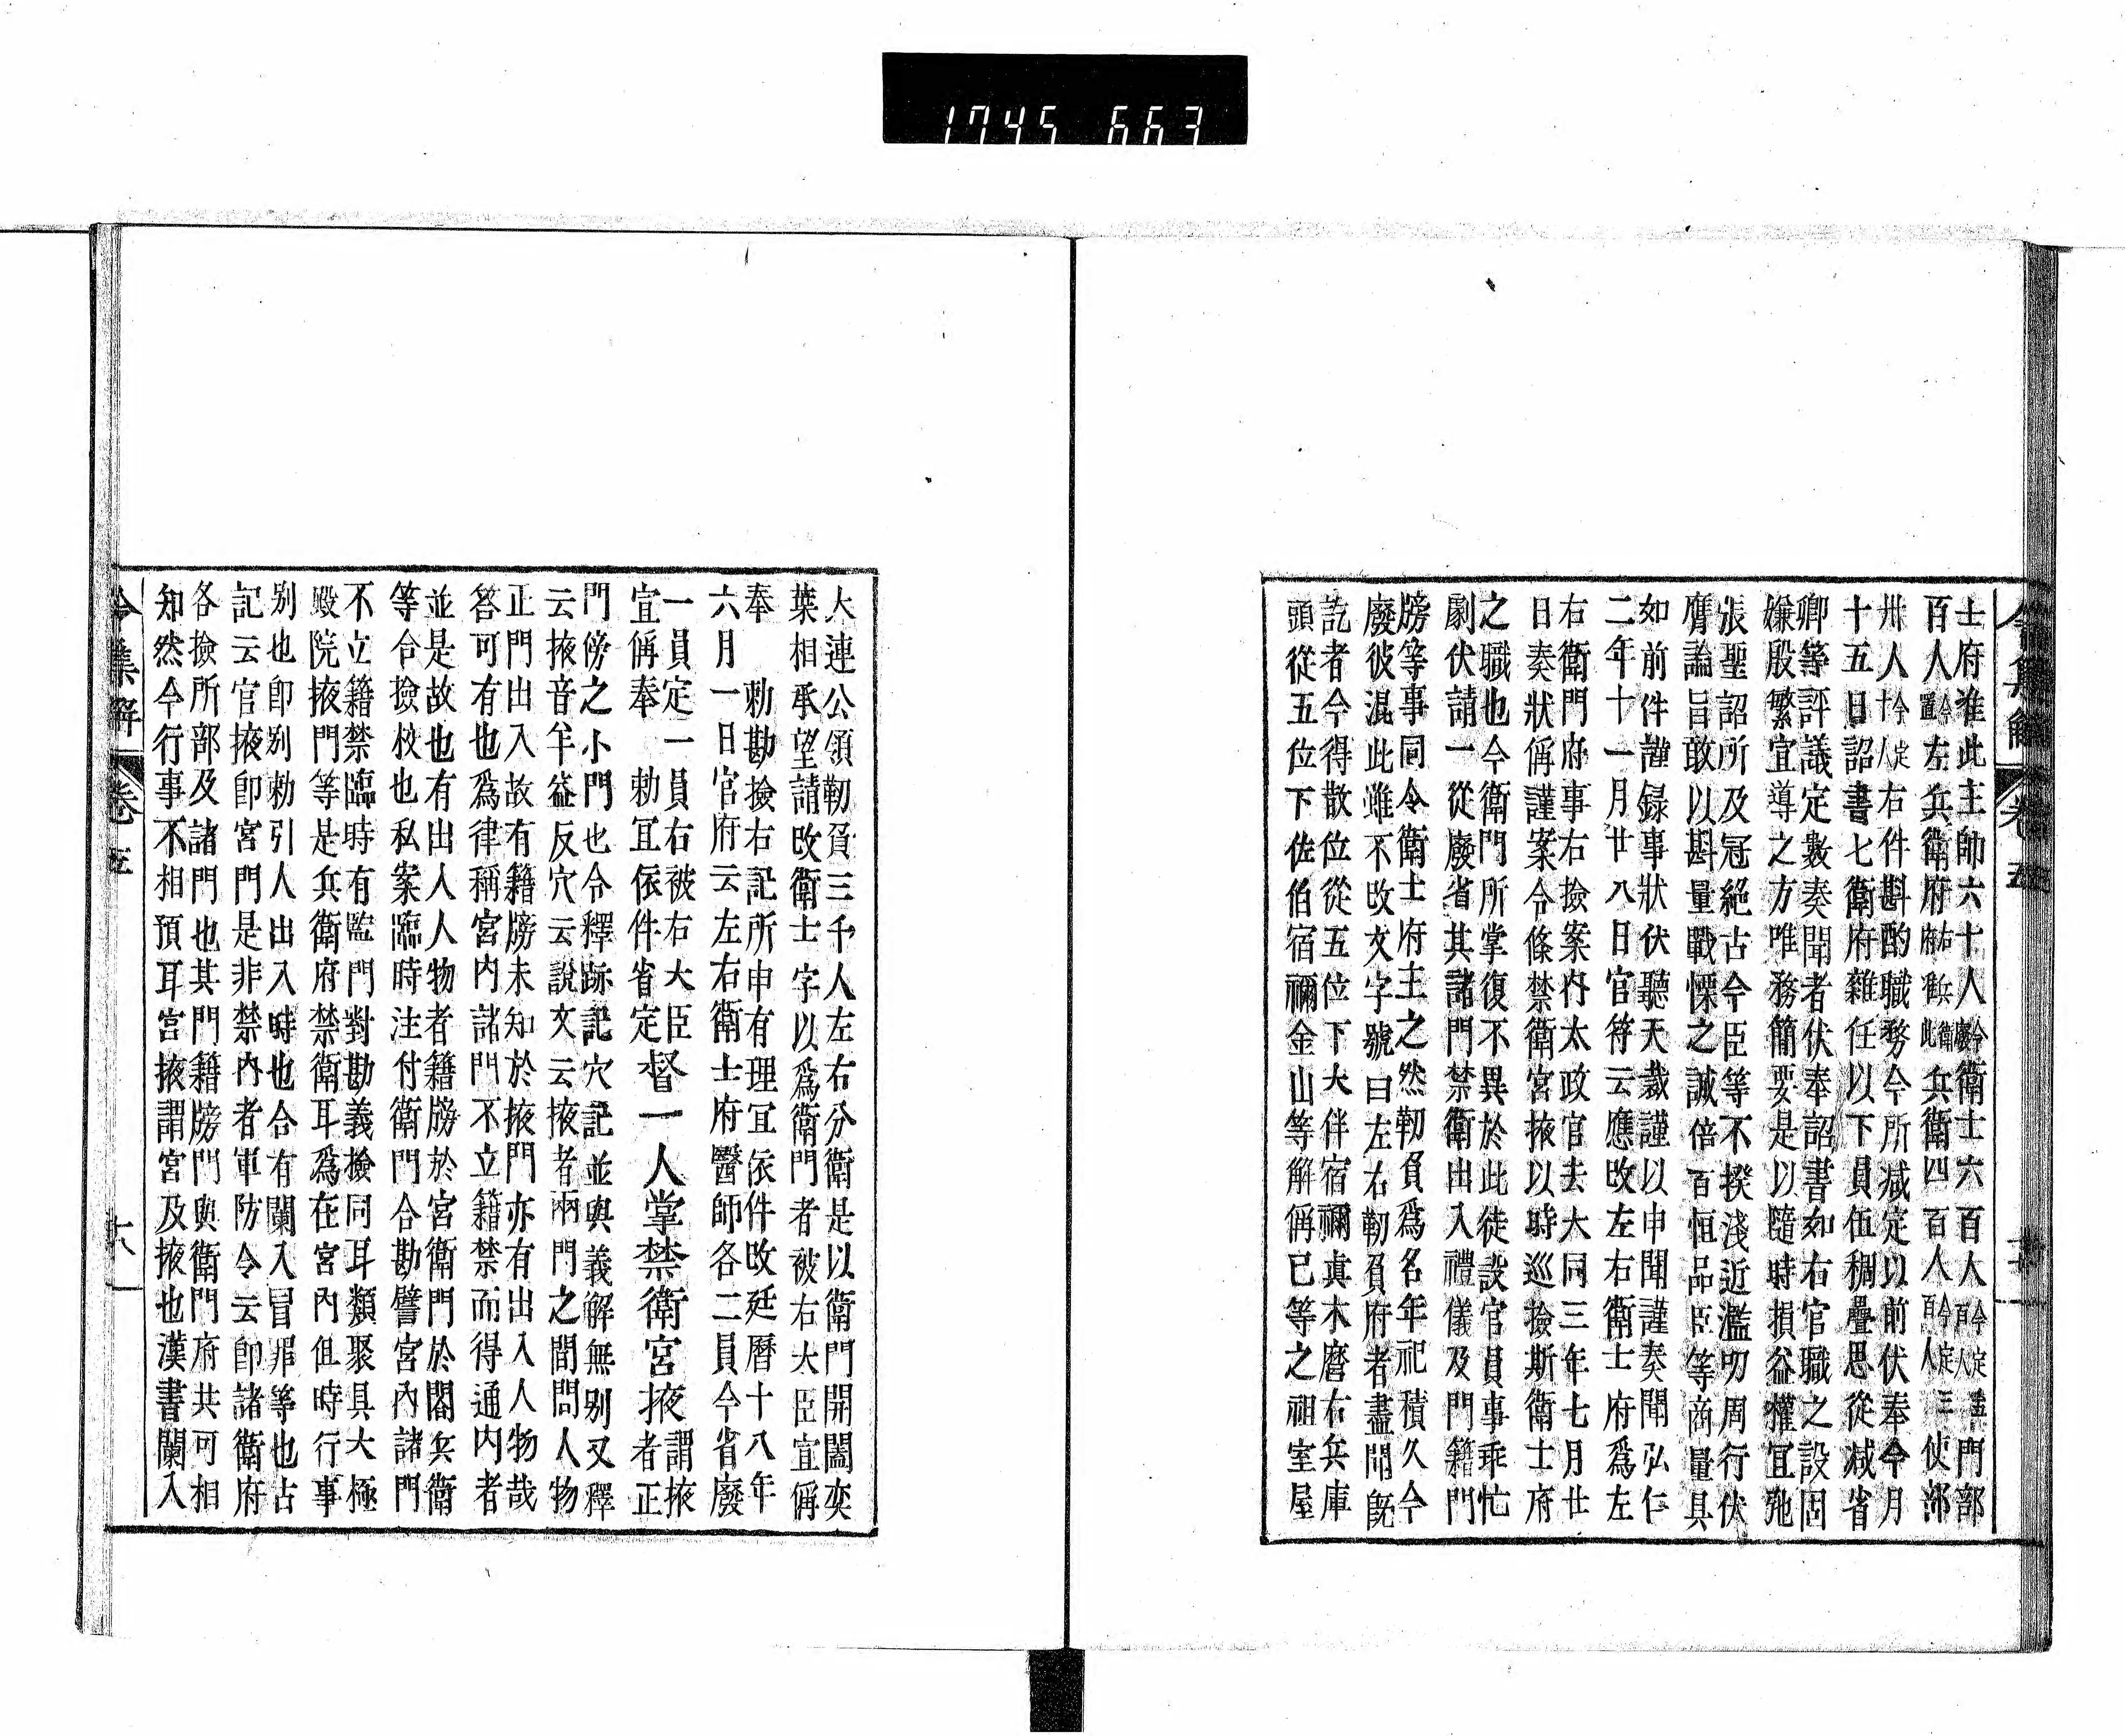 1745 663
士府准此主帥六十人今廢衛士六百人今定四百人門部
百人今置左兵衛府右兵衛府准此兵衛四百人今定三百人使部
卅人今定十人右件斟酌職務今所减定以前伏奉今月
十五日詔書七衛府雜任以下員伍稠疊思從减省
卿等評議定數奏聞者伏奉詔書如右官職之設固
嫌殷繁宜導之方唯務簡要是以隨時損益權宜弛
張聖詔所及冠絶古今臣等不揆淺近濫叨周行伏
膺論旨敢以斟量戰慄之誠倍百恒品臣等商量具
如前件謹録事狀伏聽天裁謹以申聞謹奏聞弘仁
二年十一月廿八日官符云應改左右衛士府爲左
右衛門府事右撿案内太政官去大同三年七月廿
日奏狀偁謹案令條禁衛宮掖以時巡撿斯衛士府
之職也今衛門所掌復不異於此徒設官員事乖忙
劇伏請一從廢省其諸門禁衛出入禮儀及門籍門
牓等事同令衛士府主之然靭負爲名年祀積久今
廢彼混此雖不改文字號曰左右靭負府者盡聞旣
訖者今得散位從五位下大伴宿禰眞木麿右兵庫
頭從五位下佐伯宿禰金山等解偁已等之祖室屋
大連公領靭負三千人左右分衛是以衛門開闔奕
葉相承望請改衛士字以爲衛門者被右大臣宣偁
奉　勅勘撿右記所申有理宜依件改廷曆十八年
六月一日官府云左右衛士府醫師各二員今省廢
一員定一員右被右大臣
宣偁奉　勅宜依件省定督一人掌禁衛宮掖謂掖者正
門傍之小門也令釋跡記穴記並與義解無別又釋
云掖音羊益反穴云說文云掖者兩門之間問人物
正門出入故有籍牓未知於掖門亦有出入人物哉
答可有也爲律稱宮内諸門不立籍禁而得通内者
並是故也有出人人物者籍牓於宮衛門於閤兵衛
等合撿校也私案臨時注付衛門合勘譬宮内諸門
不立籍禁臨時有監門對勘義撿同耳類聚具大極
殿院掖門等是兵衛府禁衛耳爲在宮内但時行事
別也卽別勅引人出入時也合有闌入冒罪等也古
記云官掖卽宮門是非禁内者軍防令云卽諸衛府
各撿所部及諸門也其門籍牓門與衛門府共可相
知然今行事不相預耳宮掖謂宮及掖也漢書闌入
令集解　卷五　十八